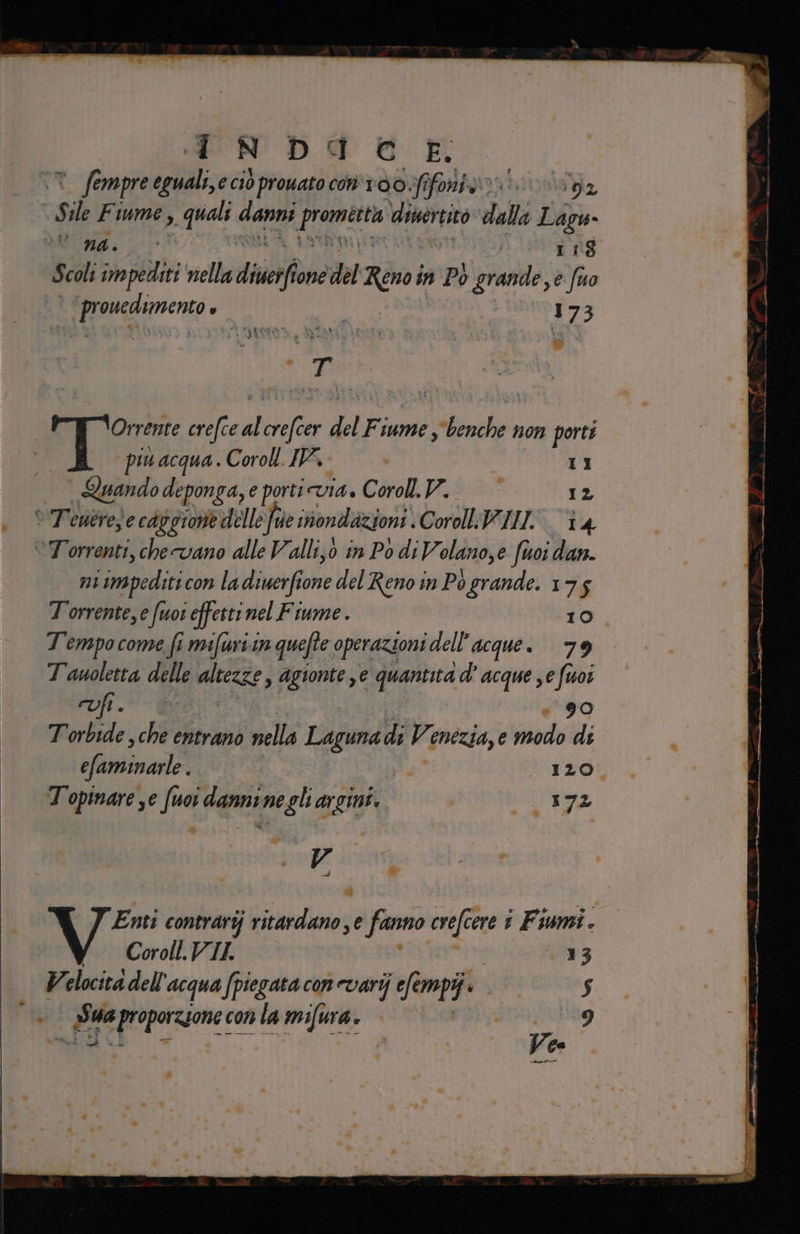 INDICE.
sempre eguali, e ciò prouato con 100. sifoni. 92
Sile Fiume, quali danni prometta diuertito dalla Lagu-
na. 118
Scoli impediti nella diuersione del Reno in Pò grande, e suo
prouedimento. 173
T
TOrrente cresce al crescer del Fiume, benche non porti
più acqua. Coroll. IV. 11
Quando deponga, e porti via. Coroll. V. 12
Teuere, e caggione delle sue inondazioni. Coroll. VIII. 14
Torrenti, che vano alle Valli, ò in Pò di Volano, e suoi dan-
ni impediti con la diuersione del Reno in Pò grande. 175
Torrente, e suoi effetti nel Fiume. 10
Tempo come si misuri in queste operazioni dell'acque. 79
Tauoletta delle altezze, agionte, e quantità d'acque, e suoi
vsi. 90
Torbide, che entrano nella Laguna di Venezia, e modo di
esaminarle. 120
Topinare, e suoi danni ne gli argini. 172
V
VEnti contrarij ritardano, e fanno crescere i Fiumi.
Coroll. VII. 13
Velocità dell'acqua spiegata con varij esempij. 5
Sua proporzione con la misura. 9
Ve-